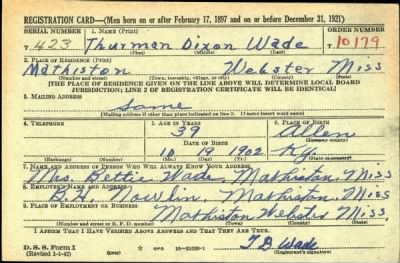 REGISTRATION CARD—(Men born on or after February 17, 1897 and on or before December 31, 1921)
SERIAL NUMBER 1. NAME (Print) ORDER NUMBER
T 423 Thurman Dixon Wade 10179
(First) (Middle) (Last)
2. PLACE OF RESIDENCE (Print)
Mathiston Webster Miss
(Number and street) (Town, township, village, or city) (County) (State)
[THE PLACE OF RESIDENCE GIVEN ON THE LINE ABOVE WILL DETERMINE LOCAL BOARD
JURISDICTION; LINE 2 OF REGISTRATION CERTIFICATE WILL BE IDENTICAL]
3. MAILING ADDRESS
Same
[Mailing address if other than place indicated on line 2. If same insert word same]
4. TELEPHONE 5. AGE IN YEARS 6. PLACE OF BIRTH
39 Allen
DATE OF BIRTH (Town or county)
10 19 1902 Ky.
(Exchange) (Number) (Mo.) (Day) (Yr.) (State or country)
7. NAME AND ADDRESS OF PERSON WHO WILL ALWAYS KNOW YOUR ADDRESS
Mrs. Bettie Wade Mathiston, Miss
8. EMPLOYER'S NAME AND ADDRESS
Nowlin, Mathiston, Miss
9. PLACE OF EMPLOYMENT OR BUSINESS
Mathiston Webster Miss.
(Number and street or R. F. D. number) (Town) (County) (State)
I AFFIRM THAT I HAVE VERIFIED ABOVE ANSWERS AND THAT THEY ARE TRUE.
D. S. S. Form 1 T D Wade
(Revised 1-1-42) (Registrant's signature)